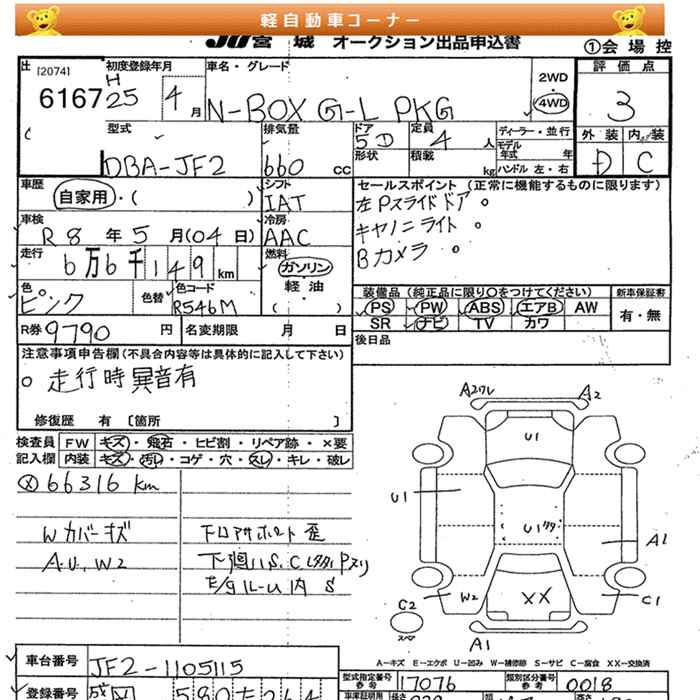 軽自動車コーナー
JU宮城 オークション出品申込書
①会場控
[2074]
6167
初度登録年月
H
25 4 月
車名・グレード
N-BOX G-L PKG
2WD
・
4WD
評価点
3
型式
DBA-JF2
排気量
660 cc
ドア
5D
形状
定員
4 人
積載
kg
ディーラー・並行
モデル
年式 年
ハンドル 左・右
外装 内装
D C
車歴
自家用・( )
シフト
IAT
セールスポイント (正常に機能するものに限ります)
左Pスライドドア。
キャノニライト。
Bカメラ 。
車検
R 8 年 5 月 (04日)
冷房
AAC
走行
6万6千149km
燃料
ガソリン
・
軽油
( )
色
ピンク
色替
色コード
R546M
装備品 (純正品に限り○をつけてください)
PS PW ABS エアB AW
SR ナビ TV カワ
新車保証書
有・無
R券 9790 円
名変期限 月 日
後日品
注意事項申告欄 (不具合内容等は具体的に記入して下さい)
○ 走行時異音有
修復歴 有 〔箇所 〕
検査員
記入欄
FW キズ・飛石・ヒビ割・リペア跡・×要
内装 キズ・汚れ・コゲ・穴・スレ・キレ・破レ
66316 km
Wカバーキズ
A.U, W2
フロアサポート 歪
下廻りS.C
E/gルーム内 S
A2ワレ A2
U1
U1
A1
W2
XX
C1
C2
スペア
A1
A－キズ E－エクボ U－凹み W－補修跡 S－サビ C－腐食 XX－交換済
車台番号
JF2-1105115
型式指定番号
17076
類別区分番号
0018
登録番号
580